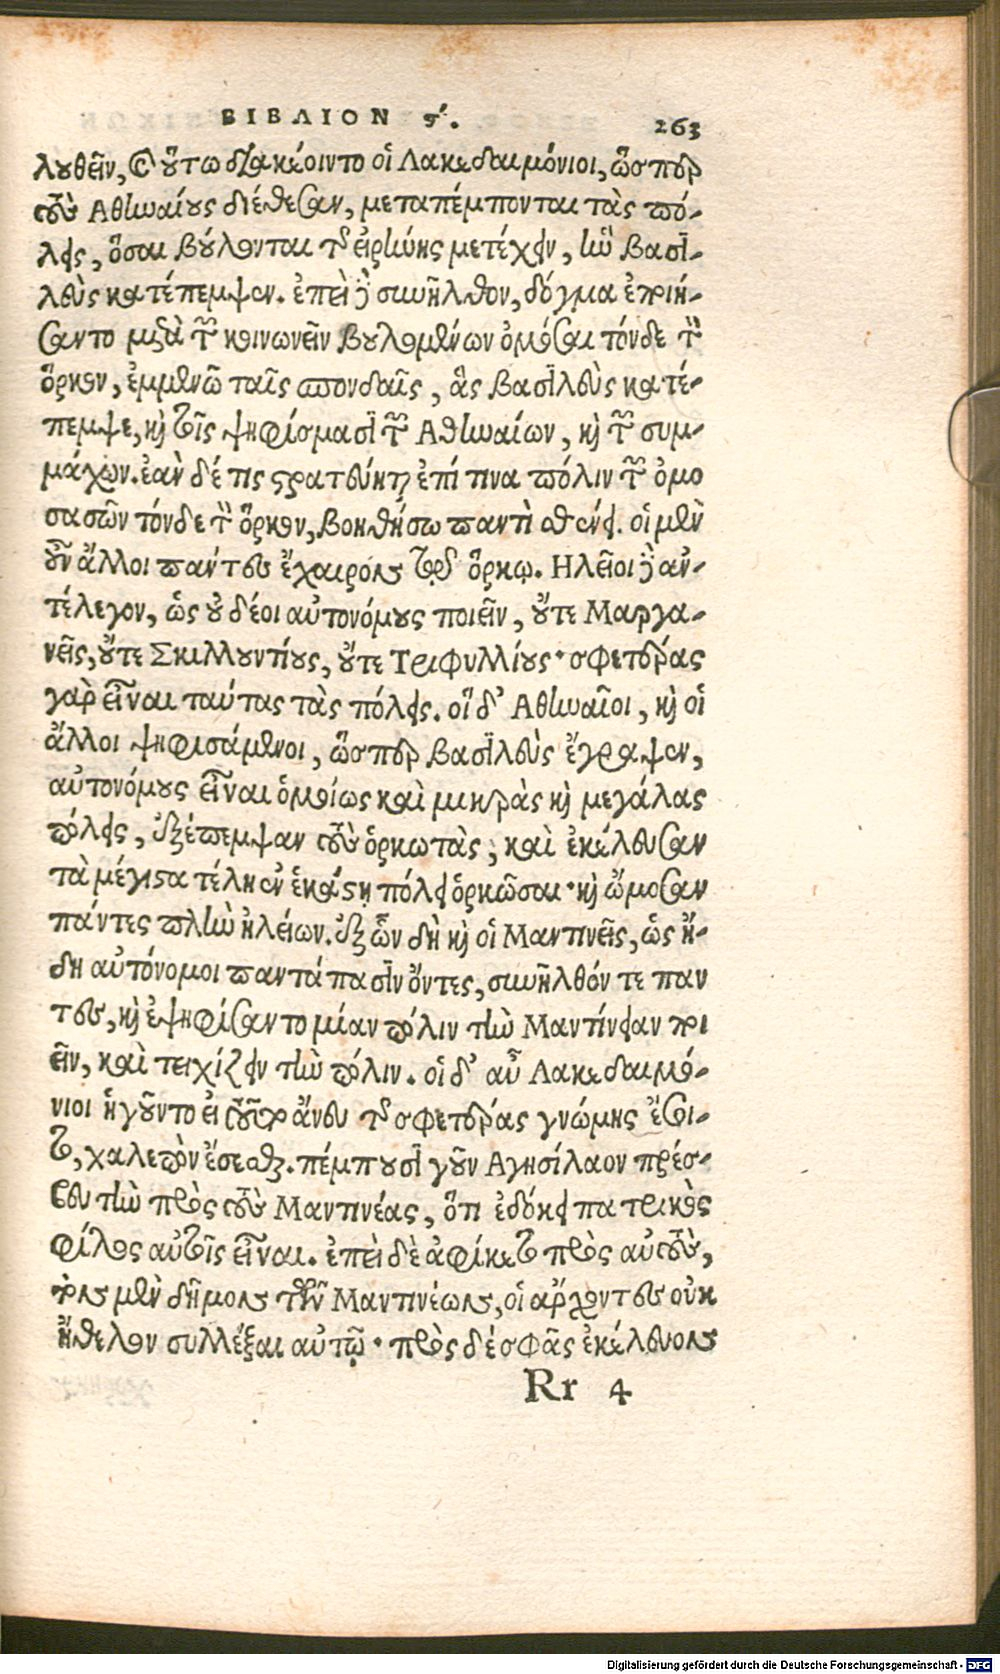 ΒΙΒΛΙΟΝ ϛ´. 263
λουθεῖν, καὶ οὕτω διακέοιντο οἱ Λακεδαιμόνιοι, ὥσπερ
τοὺς Ἀθηναίους διέθεσαν, μεταπέμπονται τὰς πό-
λεις, ὅσαι βούλονται τῆς εἰρήνης μετέχειν, ἣν βασι-
λεὺς κατέπεμψεν. ἐπεὶ δὲ συνῆλθον, δόγμα ἐποιή-
σαντο μετὰ τῶν κοινωνεῖν βουλομένων ὀμόσαι τόνδε τὸν
ὅρκον, ἐμμενῶ ταῖς σπονδαῖς, ἃς βασιλεὺς κατέ-
πεμψε, καὶ τοῖς ψηφίσμασι τῶν Ἀθηναίων, καὶ τῶν συμ-
μάχων. ἐὰν δέ τις στρατεύηται ἐπί τινα πόλιν τῶν ὀμο
σασῶν τόνδε τὸν ὅρκον, βοηθήσω παντὶ σθένει. οἱ μὲν
οὖν ἄλλοι πάντες ἔχαιρον τῷ ὅρκῳ. Ηλεῖοι δὲ ἀν-
τέλεγον, ὡς οὐ δέοι αὐτονόμους ποιεῖν, οὔτε Μαργα-
νεῖς, οὔτε Σκιλλουντίους, οὔτε Τριφυλλίους· σφετέρας
γὰρ εἶναι ταύτας τὰς πόλεις. οἱ δ' Ἀθηναῖοι, καὶ οἱ
ἄλλοι ψηφισάμενοι, ὥσπερ βασιλεὺς ἔγραψεν,
αὐτονόμους εἶναι ὁμοίως καὶ μικρὰς καὶ μεγάλας
πόλεις, ἐξέπεμψαν τοὺς ὁρκωτὰς, καὶ ἐκέλευσαν
τὰ μέγιστα τέλη ἐν ἑκάστῃ πόλει ὁρκῶσαι· καὶ ὤμοσαν
πάντες πλὴν ἠλείων. ἐξ ὧν δὴ καὶ οἱ Μαντινεῖς, ὡς ἤ-
δη αὐτόνομοι παντάπασιν ὄντες, συνῆλθόν τε παν
τες, καὶ ἐψηφίσαντο μίαν πόλιν τὴν Μαντίνειαν ποι
εῖν, καὶ τειχίζειν τὴν πόλιν. οἱ δ' αὖ Λακεδαιμό-
νιοι ἡγοῦντο εἰ τοῦτο ἄνευ τῆς σφετέρας γνώμης ἔσοι-
το, χαλεπὸν ἔσεσθαι. πέμπουσι γοῦν Αγησίλαον πρέσ-
βευτὴν πρὸς τοὺς Μαντινέας, ὅτι ἐδόκει πατρικὸς
φίλος αὐτοῖς εἶναι. ἐπεὶ δὲ ἀφίκετο πρὸς αὐτοὺς,
τὸν μὲν δῆμον τῶν Μαντινέων, οἱ ἄρχοντες οὐκ
ἤθελον συλλέξαι αὐτῷ· πρὸς δὲ σφᾶς ἐκέλευον
Rr 4
Digitalisierung gefördert durch die Deutsche Forschungsgemeinschaft - DFG